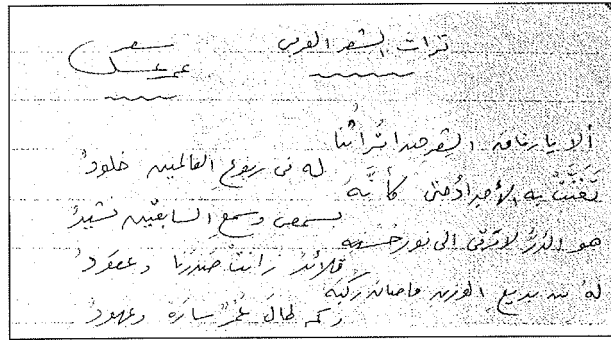 تراث الشعر العربى
شعر
عمر عسل
ألا يا رفاق الشِعر هذا تُراثُنا
له فى ربوع العالمين خلودُ
تَغَنَّتْ به الأجدادُ حتى كأنَّهُ
بسمعى وسمع السابقين نشيدُ
هو الدُرُّ لا ترقى الى نور حسنه
قلائدُ زانتْ صدرنا وعقودُ
لهُ من بديع الوزن ما صان ركبَه
وكم طالَ عُمْرٌ سارَه وعهودُ